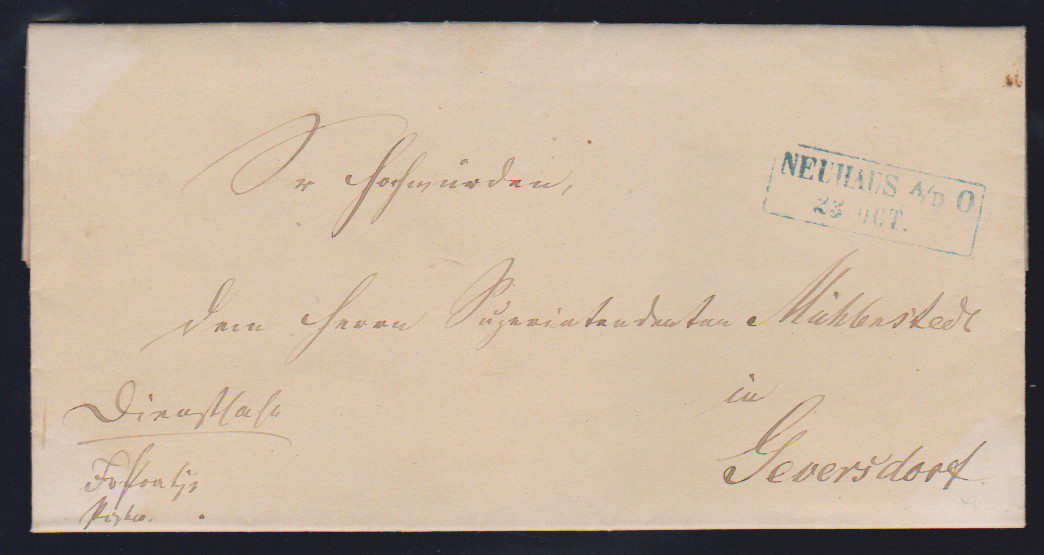 Sr Hochwürden,
NEUHAUS A/D O
23 OCT.
dem Herrn Superintendenten Mühlenstedt
in
Geversdorf.
Dienstsache